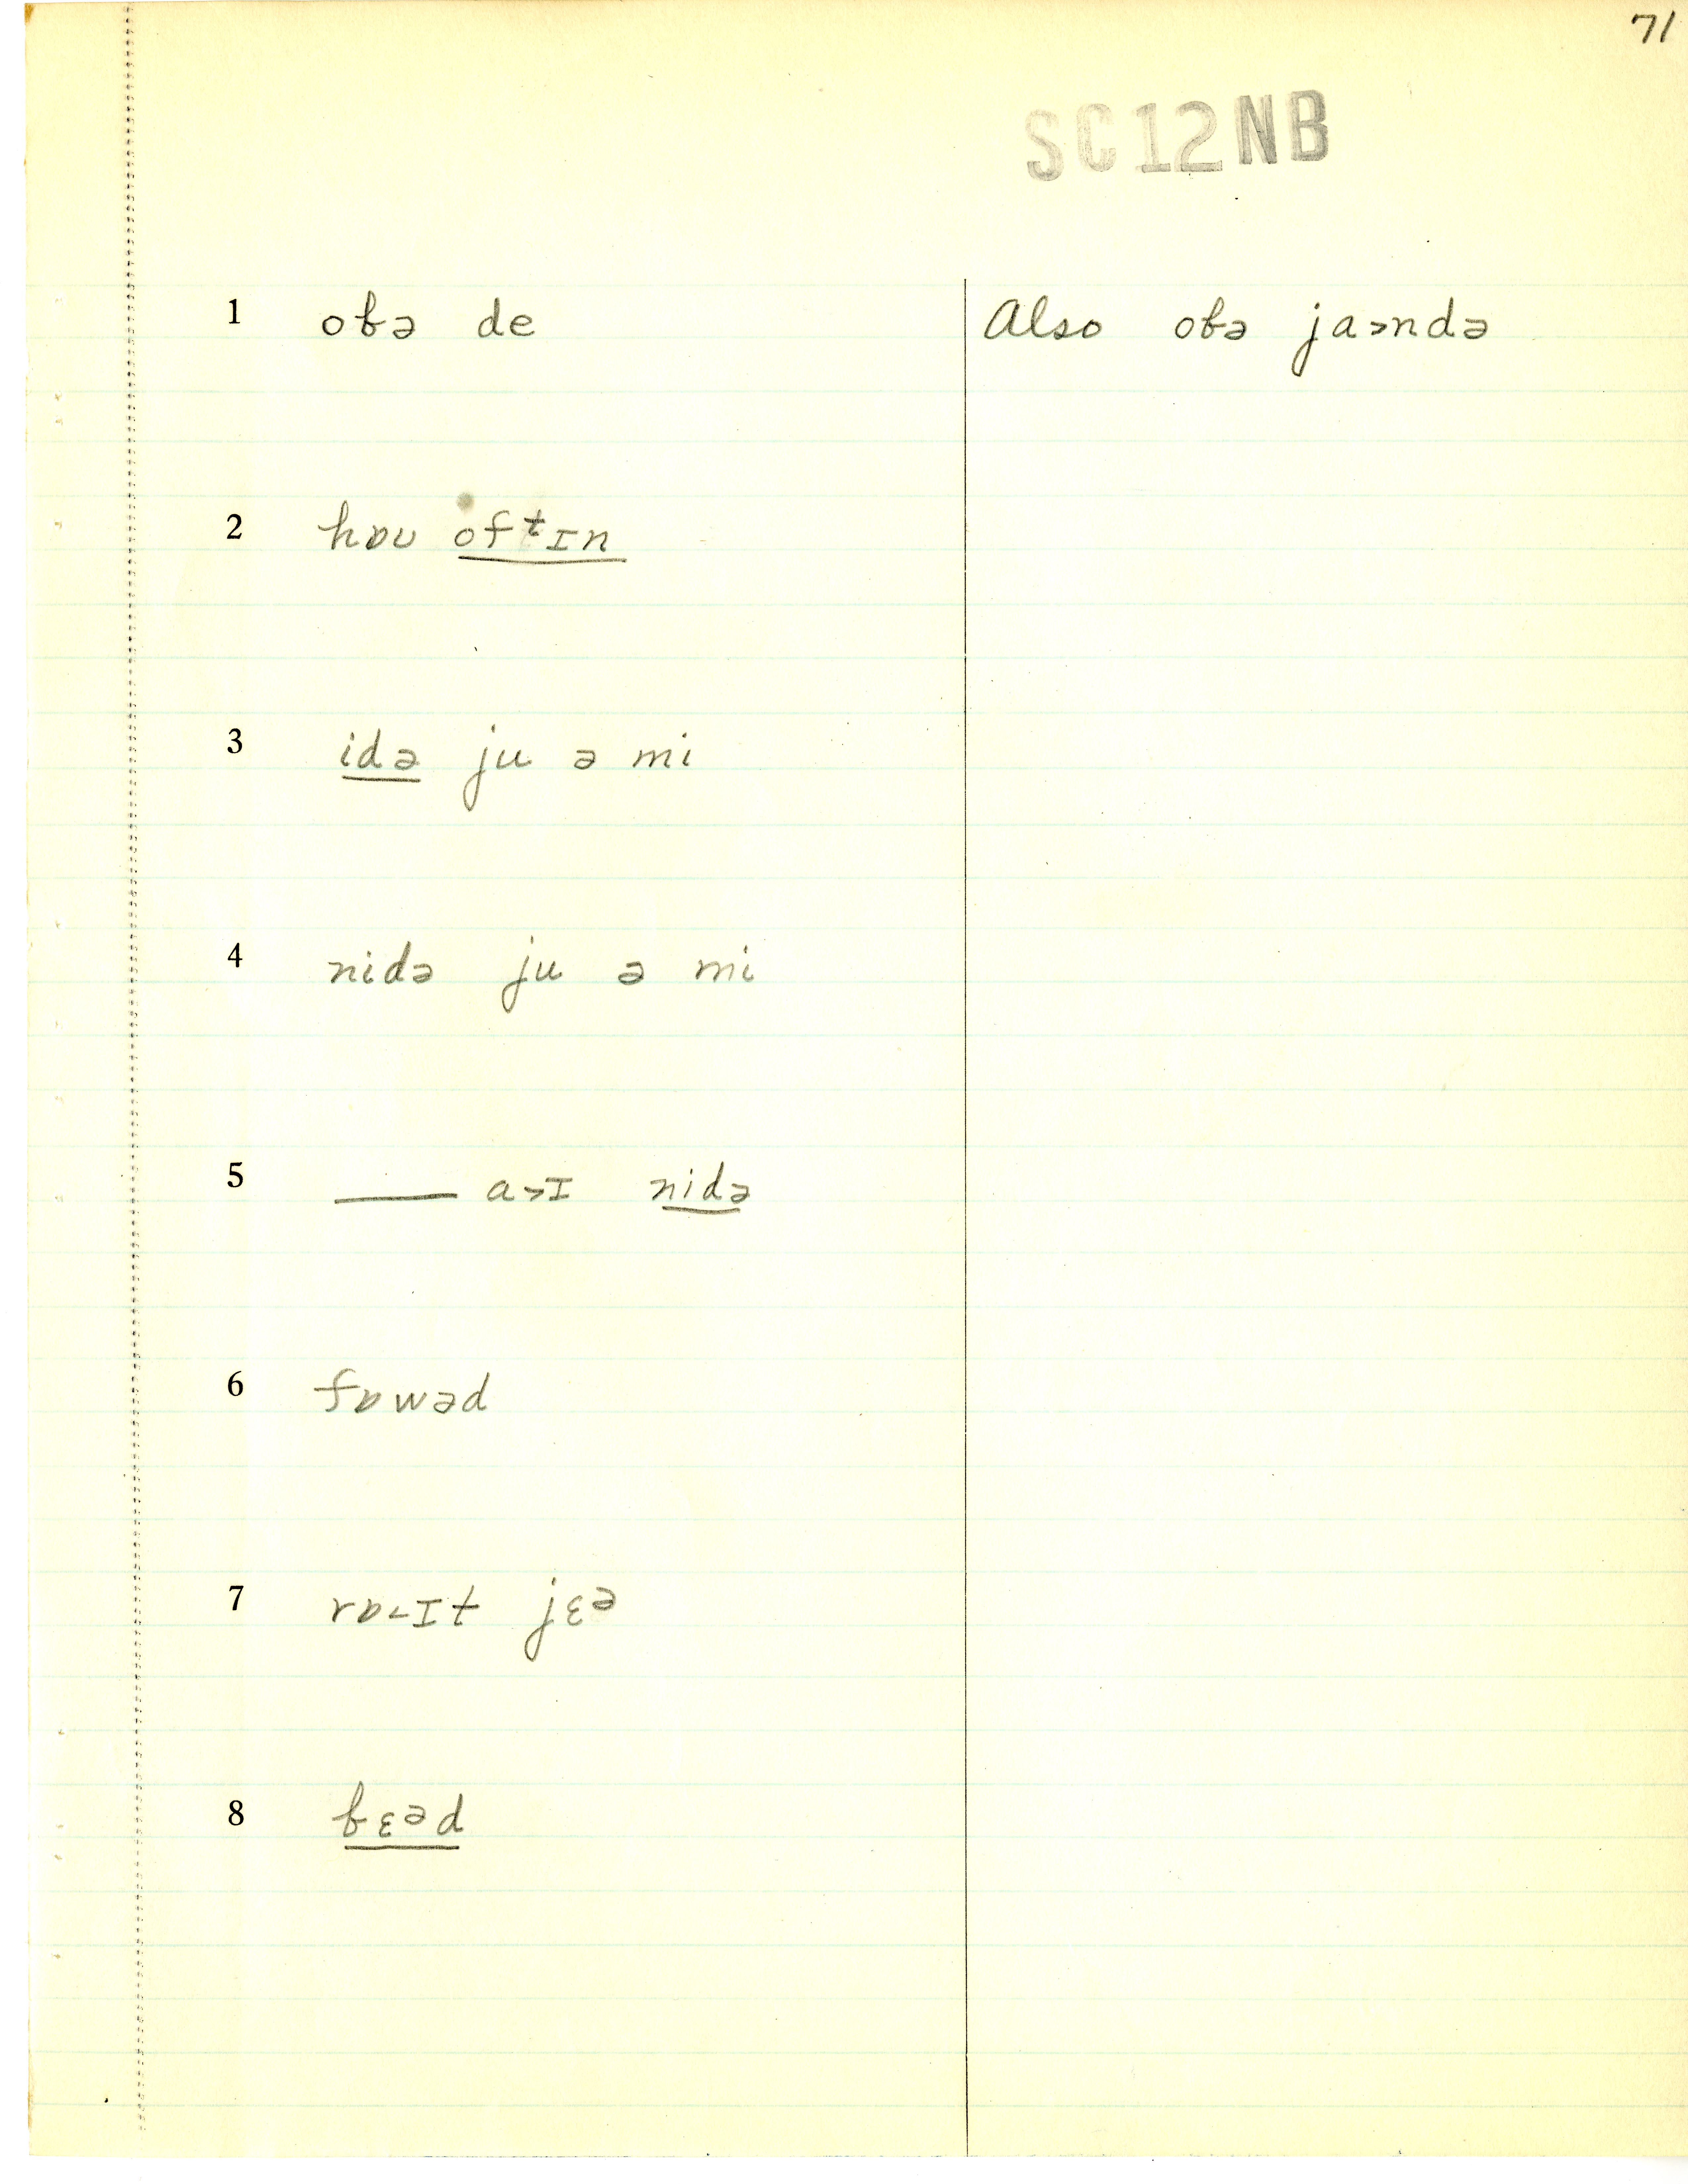 71
SC12NB
1 oɓə de Also oɓə ja>ndə
2 hɒu ofᵗɪn
3 idə ju ə mi
4 nidə ju ə mi
5 —— a>ɪ nidə
6 fɒwəd
7 rɒ<ɪt jɛᵊ
8 ɓɛᵊd